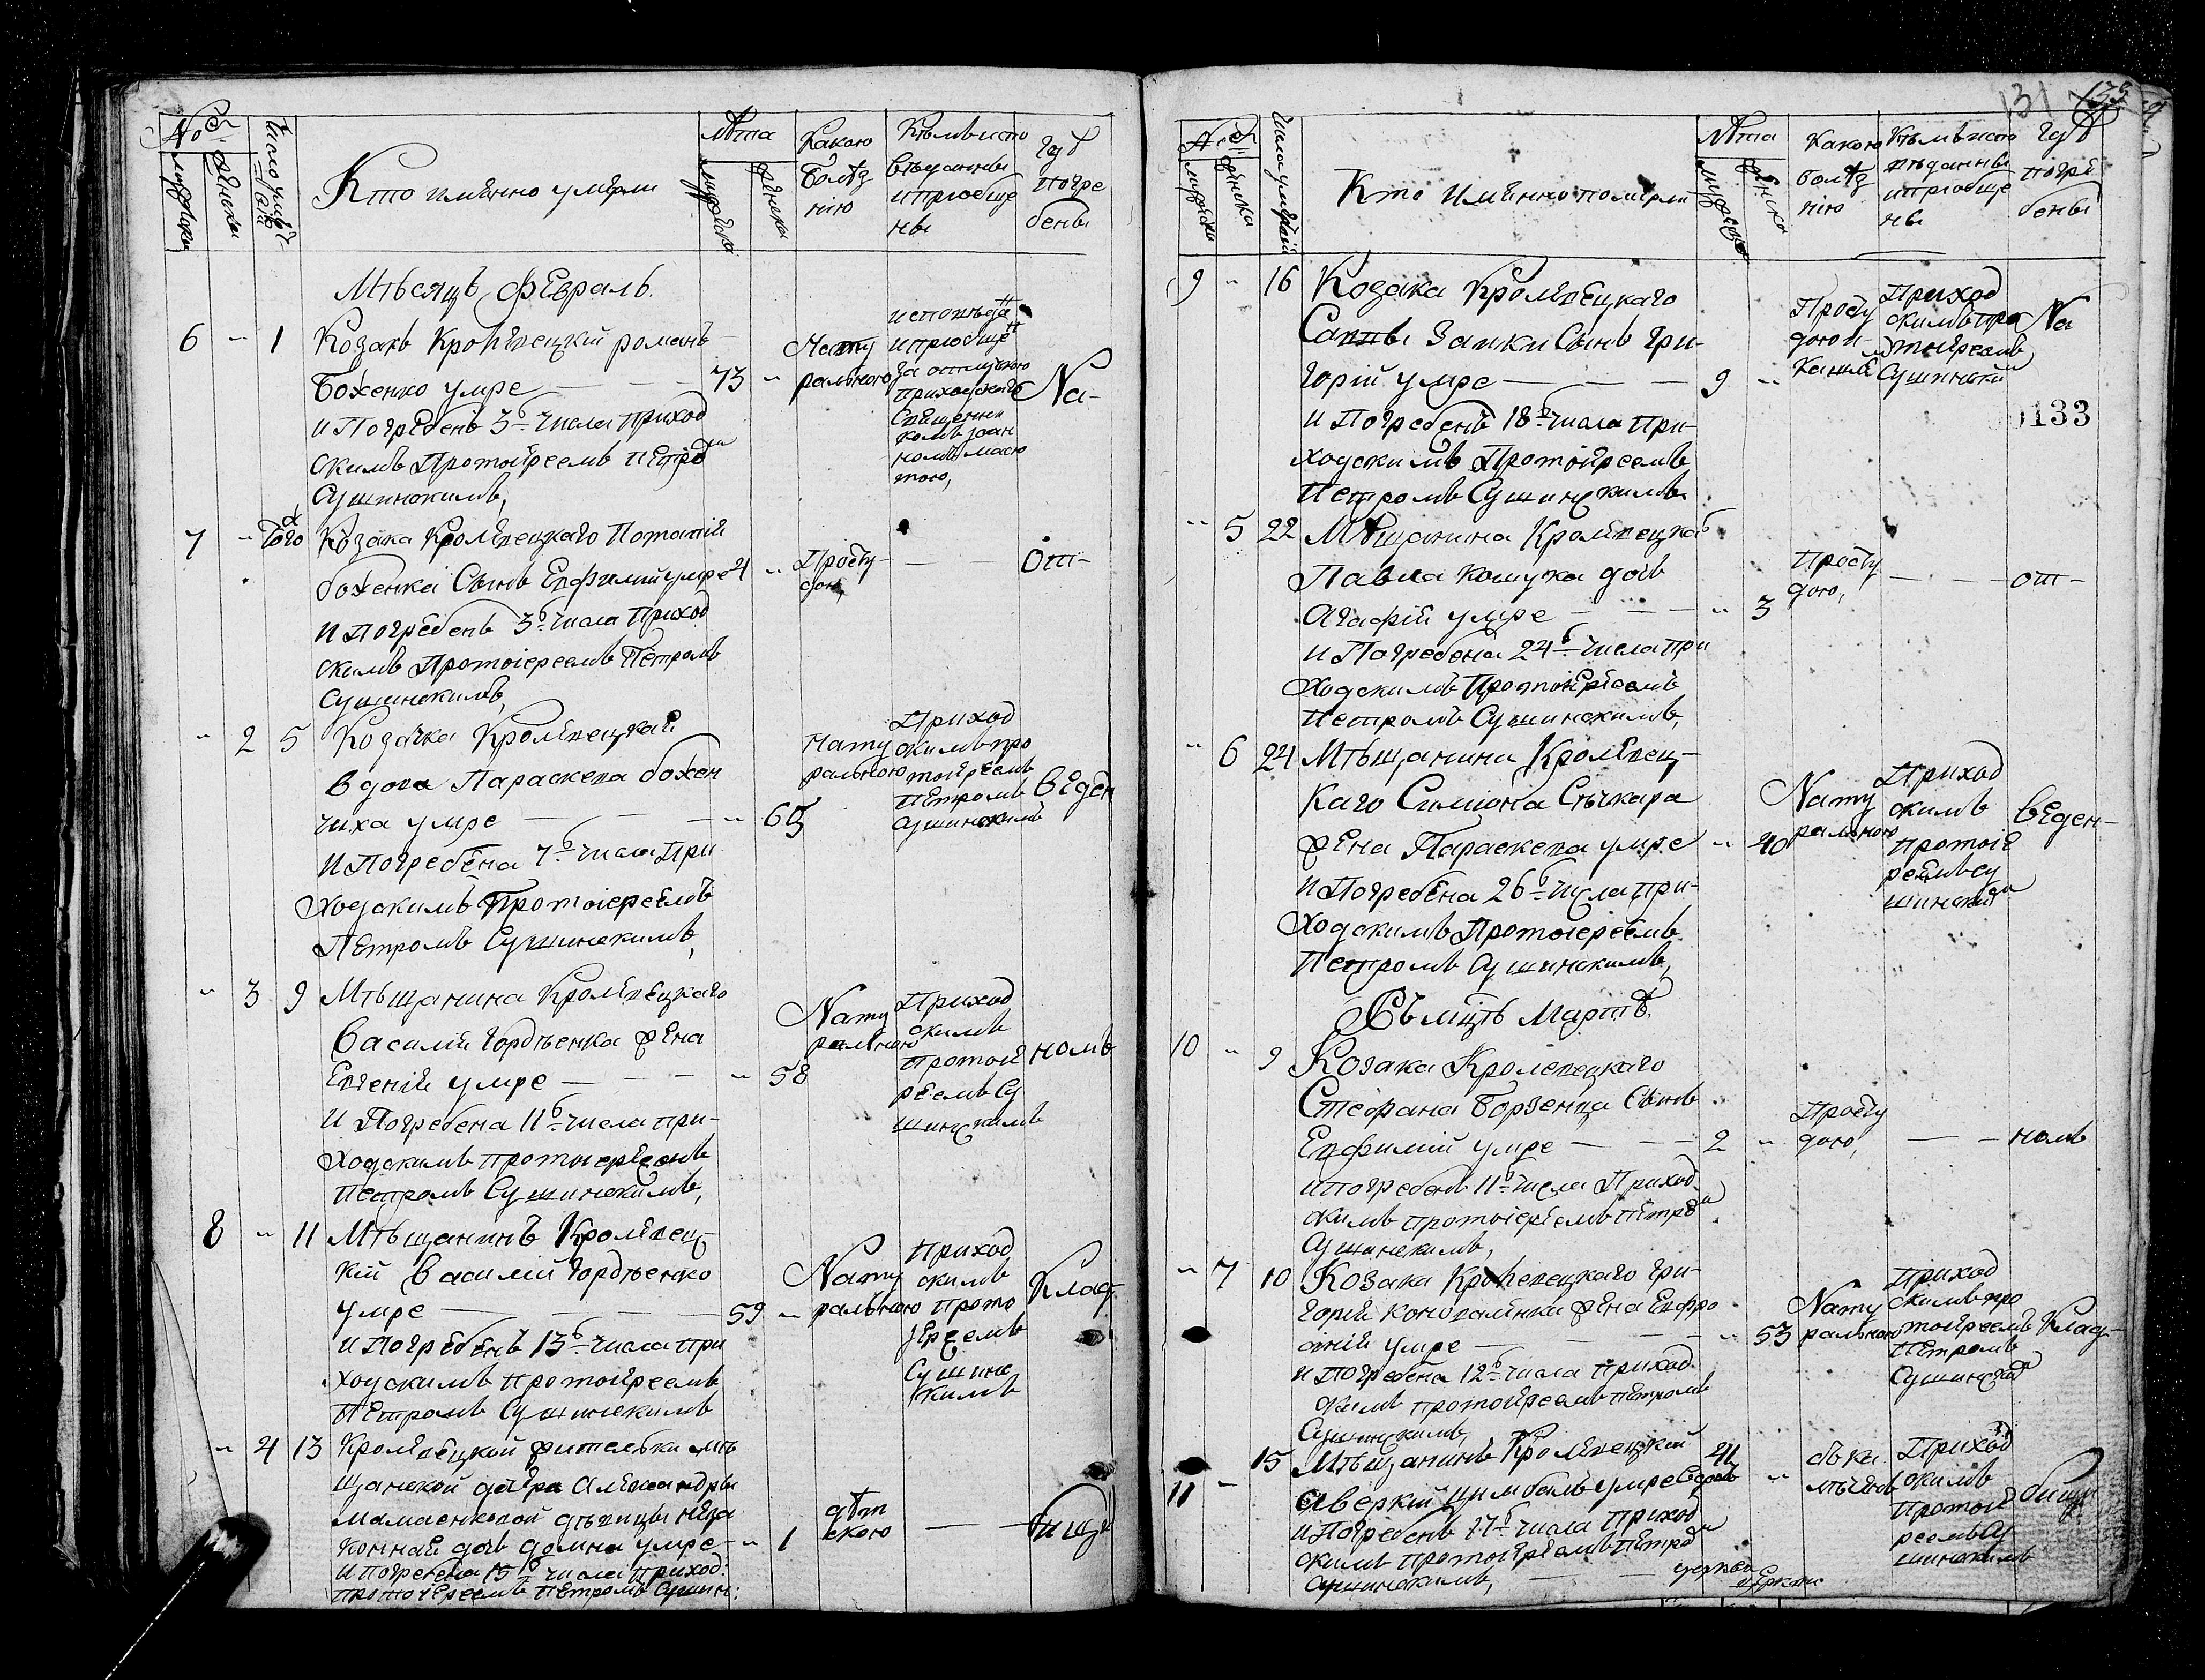 № е
мужеска
женска
Число умерш
Кто имѣнно умерли
Лѣта
мужеска
женска
Какою
болѣз
нію
Кѣмъ испо
вѣданны
и пріобще
ны
Гдѣ
погре
бены
Мѣсяцъ Февраль.
6 - 1 Козакъ Кролевецкій романъ
Боженко умре — — — 73 -
и Погребенъ 3го числа приход
скимъ Протоіереемъ Петром
Сушинскимъ,
Нату
ральною
исповѣда
и пріобще
приходскою
Священни
комъ іоан
номъ
На-
7 - Того Козака Кролевецкаго Потапія
боженка Сынъ Евфимій умре 4 -
и Погребенъ 3го числа Приход
скимъ Протоіереемъ Петромъ
Сушинскимъ,
Просту-
дою, — — От-
- 2 5 Козачка Кролевецкая
вдова Параскева божен
чиха умре — — — - 65
и Погребена 7го числа При
ходскимъ Протоіереемъ
Петромъ Сушинскимъ,
Нату
ральною
Приход
скимъ про
тоіереемъ
Петромъ
Сушинскимъ
веден
- 3 9 Мѣщанина Кролевецкаго
Василія Гордѣенка жена
Евгенія умре — — — - 58
и Погребена 11го числа при-
ходскимъ протоіереемъ
Петромъ Сушинскимъ,
Нату
ральною
Приход
скимъ
протоіе
реемъ Су
шинскимъ
номъ
8 - 11 Мѣщанинъ Кролевец-
кій Василій Гордѣенко
умре — — — 59 -
и Погребенъ 13го числа при
ходскимъ протоіереемъ
Петромъ Сушинскимъ
Нату
ральною
Приход
скимъ
прото
іереемъ
Сушинс
кимъ
Клад-
- 4 13 Кролевецкой жителки мѣ
щанской дочери Александры
мамаенковой дѣвицы неза
конная дочь домна умре - 1
и Погребена 15го числа Приход:
протоіереемъ Петромъ Сушин:
дѣт
скою — — бищѣ
131
133
№ е
мужеска
женска
Числа умершій
Кто имѣнно померли
Лѣта
мужеска
женска
Какою
болѣз
нію
Кѣмъ испо
вѣданны
и пріобще
ны
Гдѣ
погре
бены
9 - 16 Козака Кролевецкаго
Саввы Заики Сынъ Гри-
горій умре — — — 9 -
и Погребенъ 18го числа При-
ходскимъ Протоіереемъ
Петромъ Сушинскимъ
Просту
дою и
кашле
Приход
скимъ про
тоіереемъ
Сушинским
На
0133
- 5 22 Мѣщанина Кролевецкаго
Павла Кошука дочь
Агафія умре — — — - 3
и Погребена 24го числа при
ходскимъ Протоіереемъ
Петромъ Сушинскимъ,
Просту
дою, — — от-
- 6 24 Мѣщанина Кролевец-
каго Симеона Снѣчкара
жена Параскева умре - 40
и Погребена 26го числа при-
ходскимъ Протоіереемъ
Петромъ Сушинскимъ,
Нату
ральною
Приход
скимъ
протоіе
реемъ Су
шинским
веден-
Мартъ.
10 - 9 Козака Кролевецкаго
Стефана Борзенца Сынъ
Евфимій умре — — 2 -
и погребенъ 11го числа Приход
скимъ протоіереемъ Петром
Сушинскимъ,
Просту
дою, — — номъ
- 7 10 Козака Кролевецкаго Гри-
горія Коноваленка жена Евфро
синія умре — — — - 53
и Погребена 12го числа приход
скимъ протоіереемъ Петромъ
Сушинскимъ,
Нату
рально
Приход
скимъ про
тоіереемъ
Петромъ
Сушинским
Клад-
11 - 15 Мѣщанинъ Кролевецкій
Аверкій Цимбалъ умре 41 -
и Погребенъ 17го числа Приход
скимъ протоіереемъ Петром
Сушинскимъ,
Приход
скимъ
протоіе
реемъ Су
шинскимъ
бищѣ
церкви